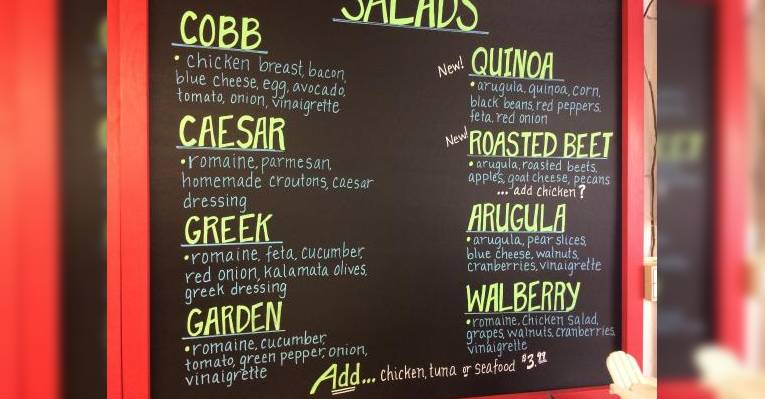 SALADS
COBB
• chicken breast, bacon,
blue cheese, egg, avocado,
tomato, onion, vinaigrette
CAESAR
• romaine, parmesan,
homemade croutons, caesar
dressing
GREEK
• romaine, feta, cucumber,
red onion, kalamata olives,
greek dressing
GARDEN
• romaine, cucumber,
tomato, green pepper, onion,
vinaigrette
New! QUINOA
• arugula, quinoa, corn,
black beans, red peppers,
feta, red onion
New! ROASTED BEET
• arugula, roasted beets,
apples, goat cheese, pecans
... add chicken?
ARUGULA
• arugula, pear slices,
blue cheese, walnuts,
cranberries, vinaigrette
WALBERRY
• romaine, Chicken Salad,
grapes, walnuts, cranberries,
vinaigrette
Add... chicken, tuna or seafood $3.99